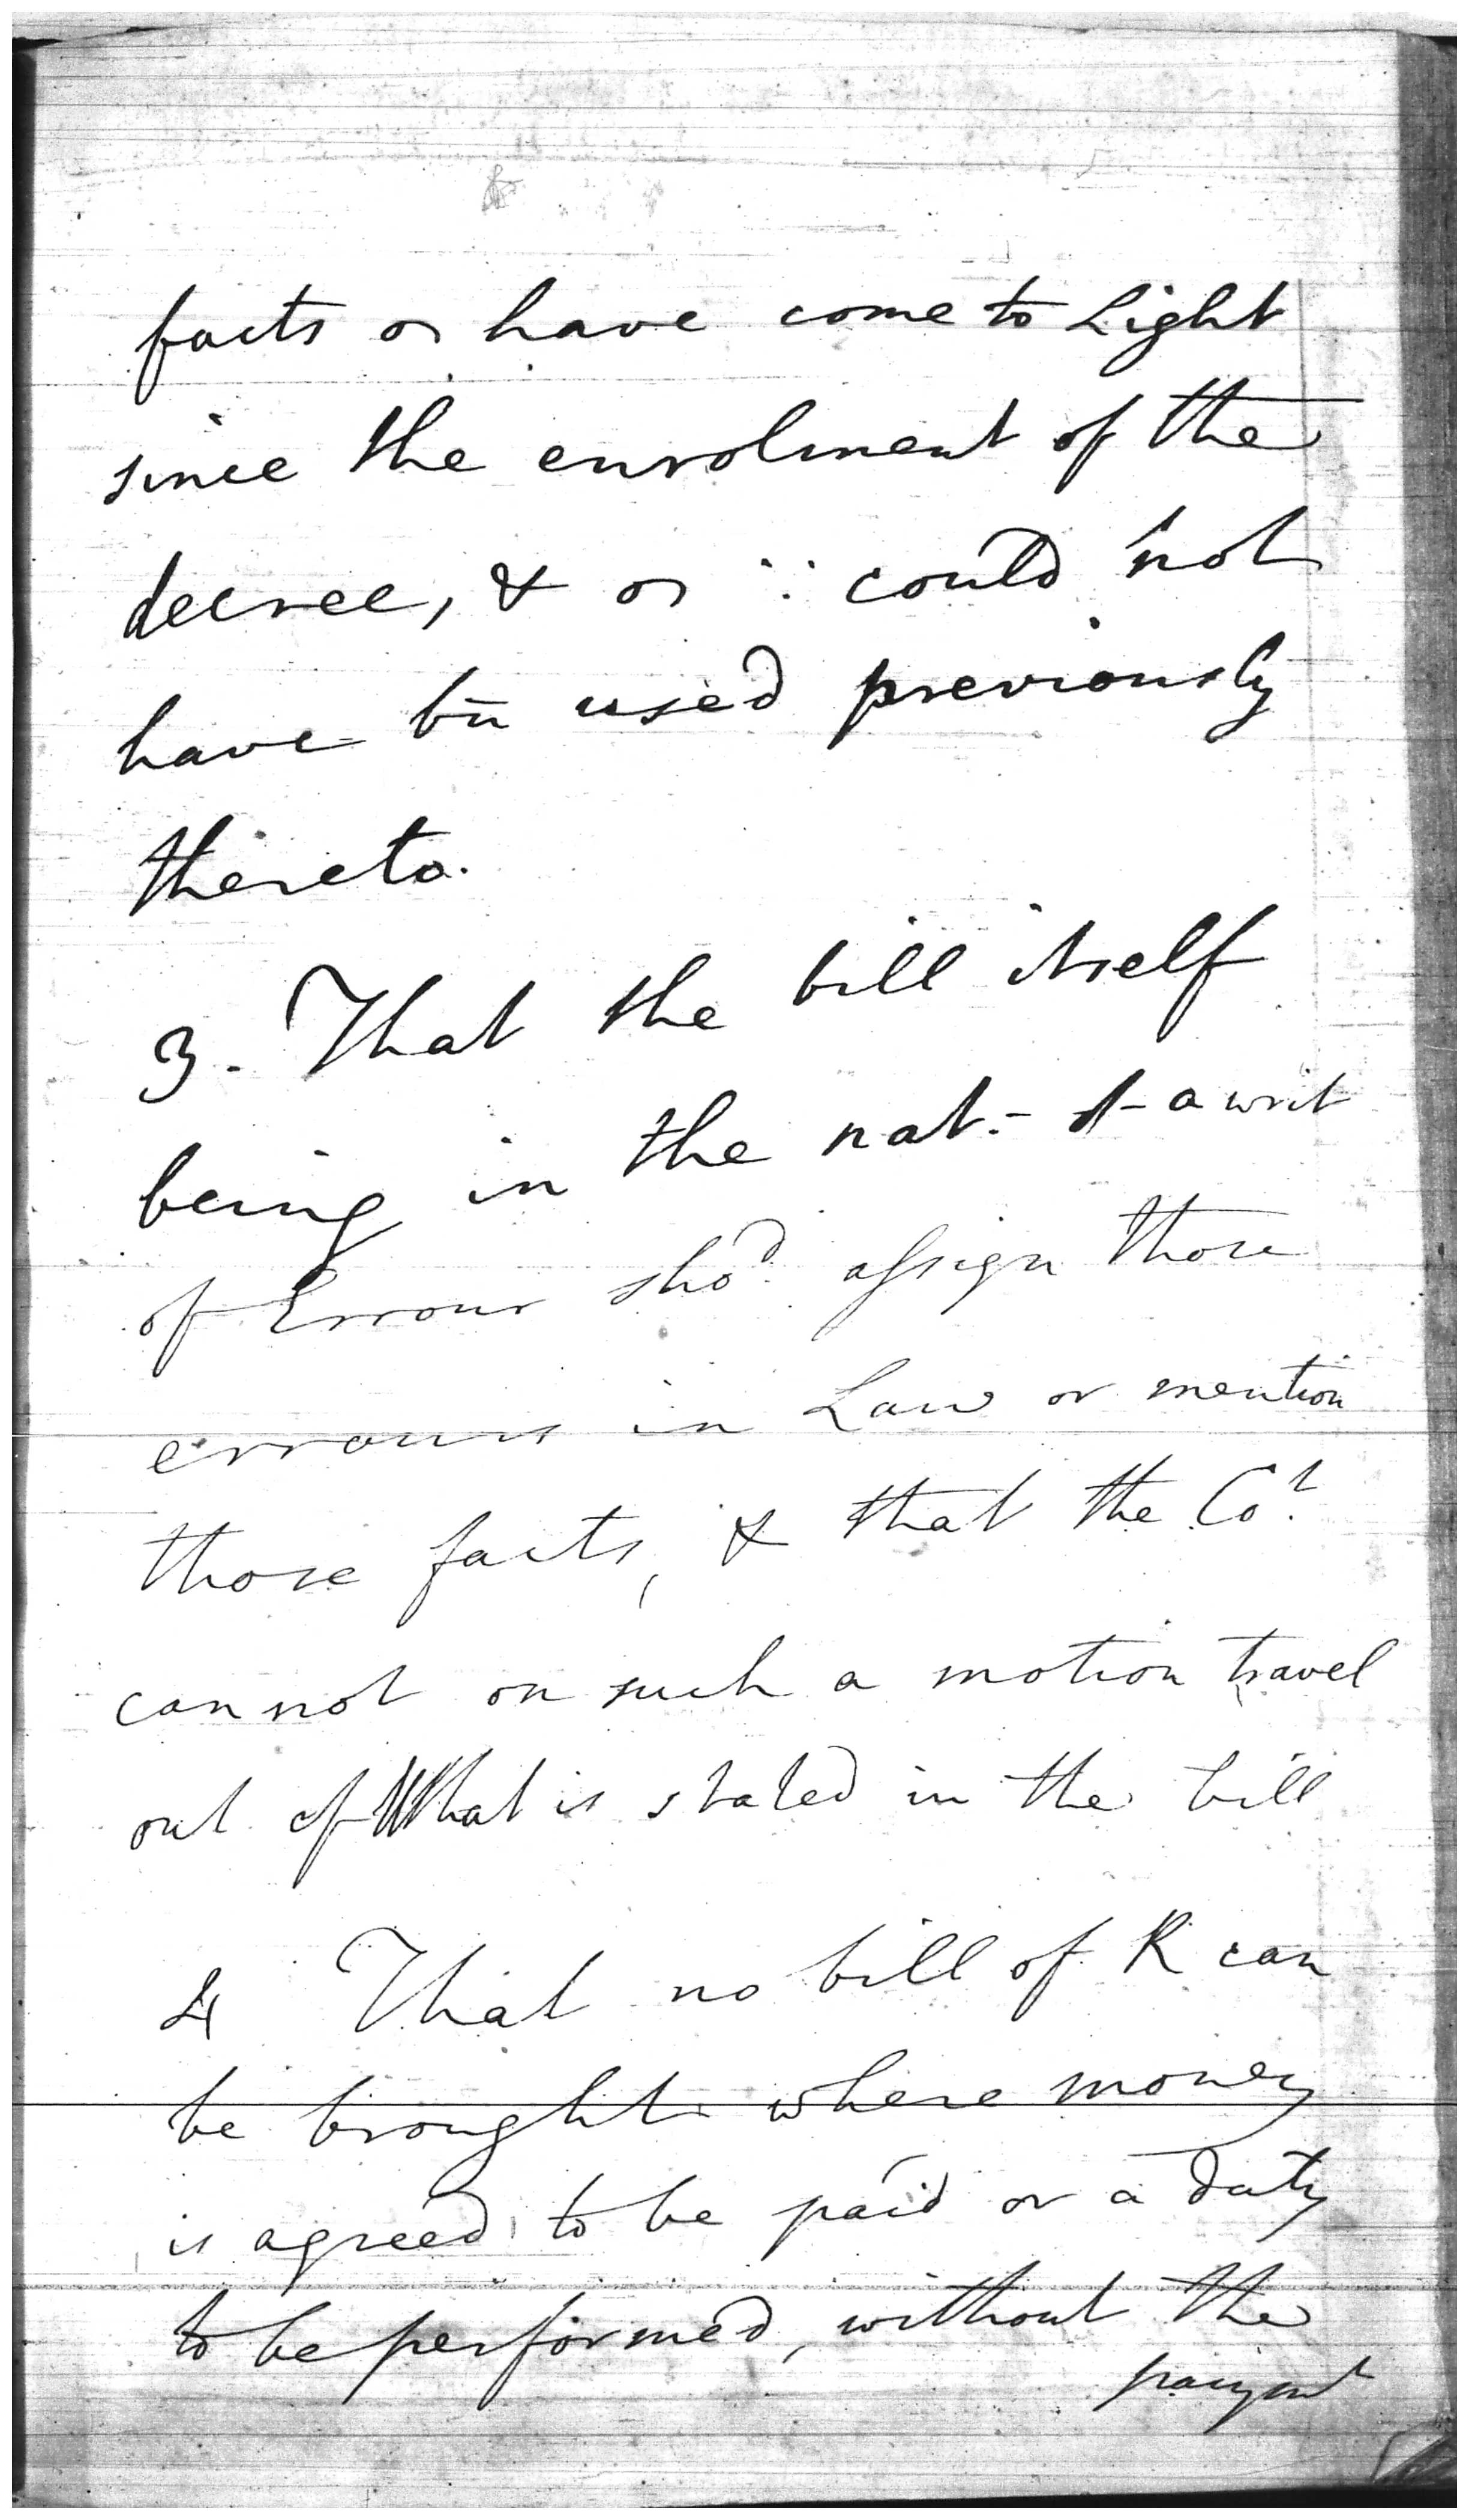 facts or have come to Light
since the enrolment of the
decree, & or ∵ could not
have bn̄ used previously
thereto.
3. That the bill itself
being in the nat.- of a writ
of Errour shod. assign those
errours in Law or mention
those facts, & that the Cot.
cannot on such a motion travel
out of What is stated in the bill
4 That no bill of R can
be brought where money
is agreed to be paid or a duty
to be performed, without the
paiymt